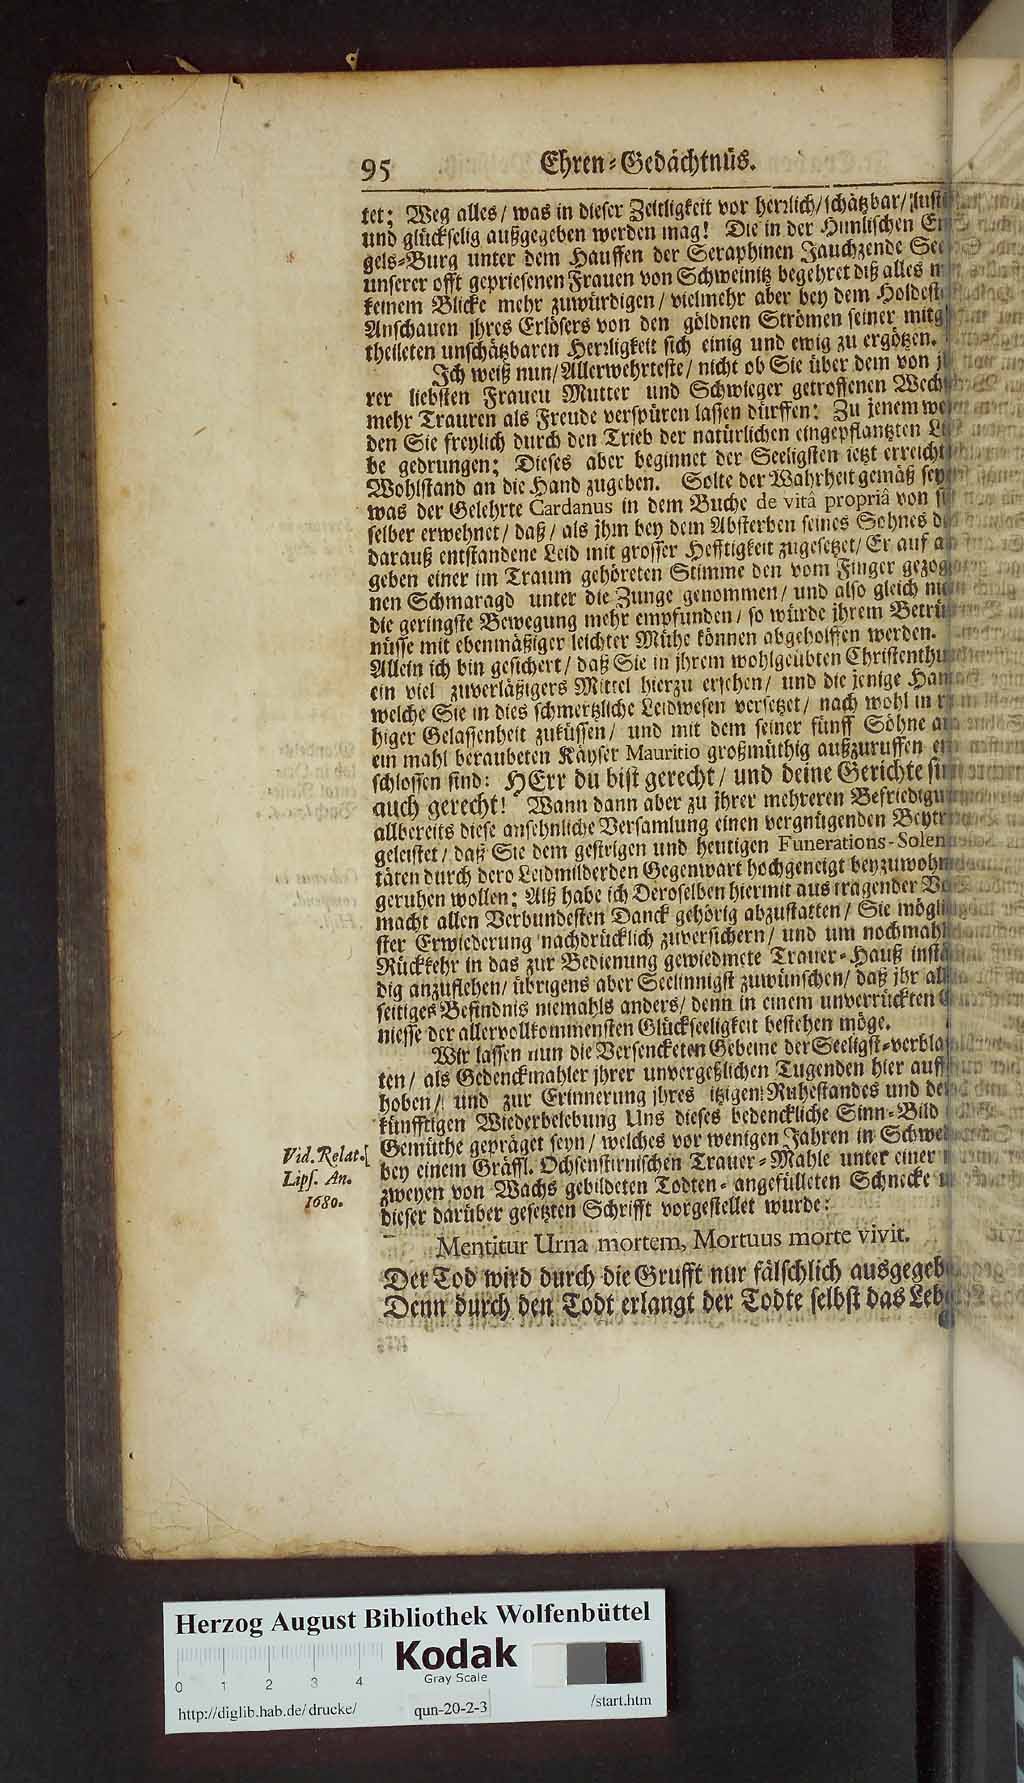 95 Ehren-Gedächtnüs.
tet; Weg alles/ was in dieser Zeitligkeit vor herrlich/ schätzbar/ lusti
und glückselig außgegeben werden mag! Die in der Himlischen En
gels-Burg unter dem Hauffen der Seraphinen Jauchzende See
unserer offt gepriesenen Frauen von Schweinitz begehret diß alles
keinem Blicke mehr zuwürdigen/ vielmehr aber bey dem Holdest
Anschauen jhres Erlösers von den göldnen Strömen seiner mitg
theileten unschätzbaren Herrligkeit sich einig und ewig zu ergötzen.
Ich weiß nun/ Allerwehrteste/ nicht ob Sie über dem von
rer liebsten Frauen Mutter und Schwieger getroffenen Wech
mehr Trauren als Freude verspüren lassen dürffen: Zu jenem we
den Sie freylich durch den Trieb der natürlichen eingepflantzten Li
be gedrungen; Dieses aber beginnet der Seeligsten ietzt erreicht
Wohlstand an die Hand zugeben. Solte der Wahrheit gemäß sey
was der Gelehrte Cardanus in dem Buche de vitâ propriâ von
selber erwehnet/ daß/ als jhm bey dem Absterben seines Sohnes
darauß entstandene Leid mit grosser Hefftigkeit zugesetzet/ Er auf
geben einer im Traum gehöreten Stimme den vom Finger gezog
nen Schmaragd unter die Zunge genommen/ und also gleich
die geringste Bewegung mehr empfunden/ so würde jhrem Betrü
nüsse mit ebenmäßiger leichter Mühe können abgeholffen werden.
Allein ich bin gesichert/ daß Sie in jhrem wohlgeübten Christenthu
ein viel zuverläßigers Mittel hierzu ersehen/ und die jenige Han
welche Sie in dies schmertzliche Leidwesen versetzet/ nach wohl in
higer Gelassenheit zuküssen/ und mit dem seiner fünff Söhne
ein mahl beraubeten Käyser Mauritio großmüthig außzuruffen
schlossen sind: HErr du bist gerecht/ und deine Gerichte
auch gerecht! Wann dann aber zu jhrer mehreren Befriedigu
allbereits diese ansehnliche Versamlung einen vergnügenden Beytr
geleistet/ daß Sie dem gestrigen und heutigen Funerations-Solen
täten durch dero Leidmilderden Gegenwart hochgeneigt beyzuwohn
geruhen wollen; Alß habe ich Deroselben hiermit aus tragender
macht allen Verbundesten Danck gehörig abzustatten/ Sie mögli
ster Erwiederung nachdrücklich zuversichern/ und um nochmahl
Rückkehr in das zur Bedienung gewiedmete Trauer-Hauß instä
dig anzuflehen/ übrigens aber Seelinnigst zuwünschen/ daß jhr al
seitiges Befindnis niemahls anders/ denn in einem unverrückten
niesse der allervollkommensten Glückseeligkeit bestehen möge.
Wir lassen nun die Versencketen Gebeine der Seeligst-verbla
ten/ als Gedenckmahler jhrer unvergeßlichen Tugenden hier auff
hoben/ und zur Erinnerung jhres itzigen Ruhestandes und de
künfftigen Wiederbelebung Uns dieses bedenckliche Sinn-Bild
Gemüthe gepräget seyn/ welches vor wenigen Jahren in Schwe
bey einem Gräffl. Ochsenstirnischen Trauer-Mahle unter einer
zweyen von Wachs gebildeten Todten-angefülleten Schnecke
dieser darüber gesetzten Schrifft vorgestellet wurde:
Vid. Relat.
Lips. An.
1680.
Mentitur Urna mortem, Mortuus morte vivit.
Der Tod wird durch die Grufft nur fälschlich ausgegeb
Denn durch den Todt erlangt der Todte selbst das Leb
Herzog August Bibliothek Wolfenbüttel
Kodak
Gray Scale
0 1 2 3 4
http://diglib.hab.de/drucke/ qun-20-2-3 /start.htm